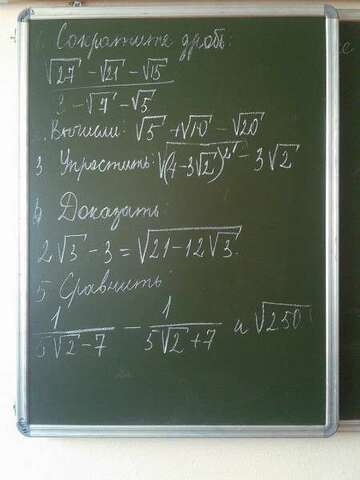 1. Сократить дробь:
√27 - √21 - √15
3 - √7 - √5
2. Вычисли: √5 + √10 - √20
3 Упростить: √(4-3√2)² - 3√2
4 Доказать:
2√3 - 3 = √21-12√3.
5. Сравнить:
1/(5√2-7) - 1/(5√2+7) и √250